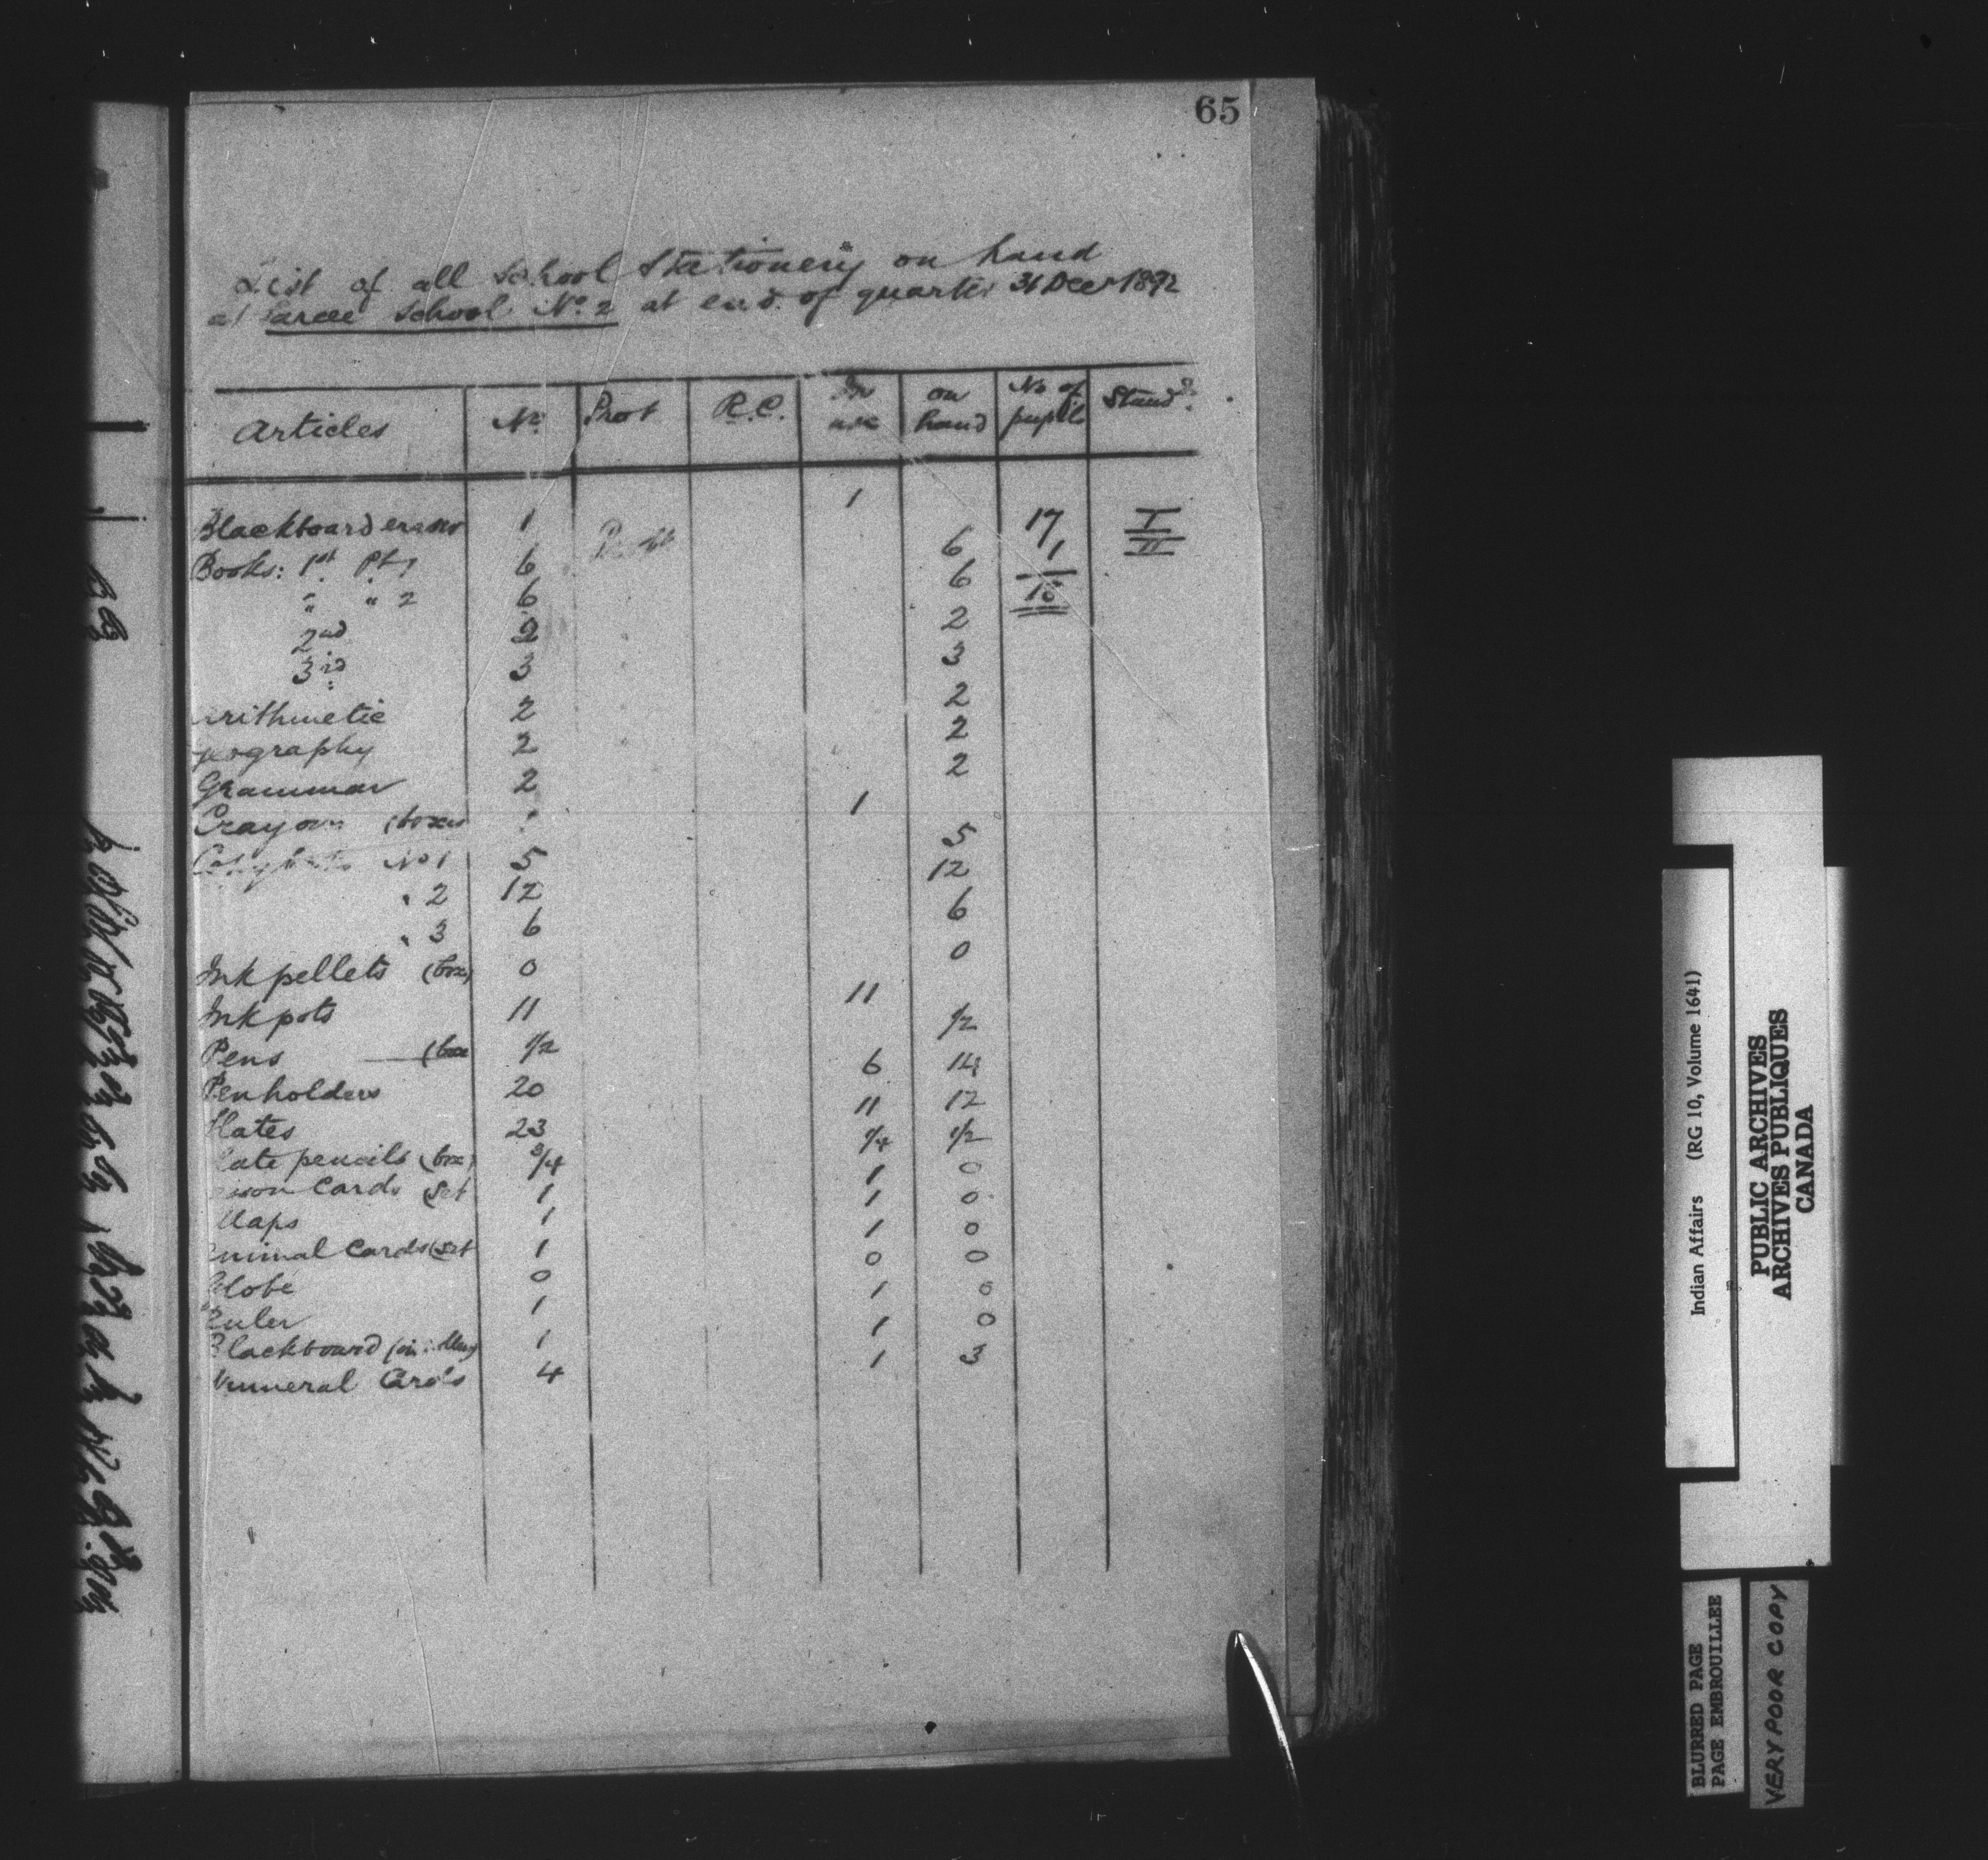 65
List of all School Stationery on hand
at Sarcee School No. 2 at end of quarter 31 Decr 1892
Articles No. Prot R.C. In use on hand No of pupils Standd.
Blackboard eraser 1 1 17 I
Books: 1st Pt 1 6 Prott 6 1 II
" " 2 6 6 18
2nd 2 2
3rd 3 3
Arithmetic 2 2
Geography 2 2
Grammar 2 2
Crayons (boxes 1
No 1 5 5
" 2 12 12
" 3 6 6
Ink pellets (box) 0 0
Ink pots 11 11
Pens (box 1/2 1/2
Penholders 20 6 14
Slates 23 11 12
Slate pencils (box) 3/4 1/4 1/2
Cards (Set 1 1 0
Maps 1 1 0
Animal Cards (Set 1 1 0
Globe 0 0 0
Ruler 1 1 0
Blackboard 1 1 0
Numeral Cards 4 1 3
Indian Affairs (RG 10, Volume 1641)
PUBLIC ARCHIVES
ARCHIVES PUBLIQUES
CANADA
BLURRED PAGE
PAGE EMBROUILLEE
VERY POOR COPY